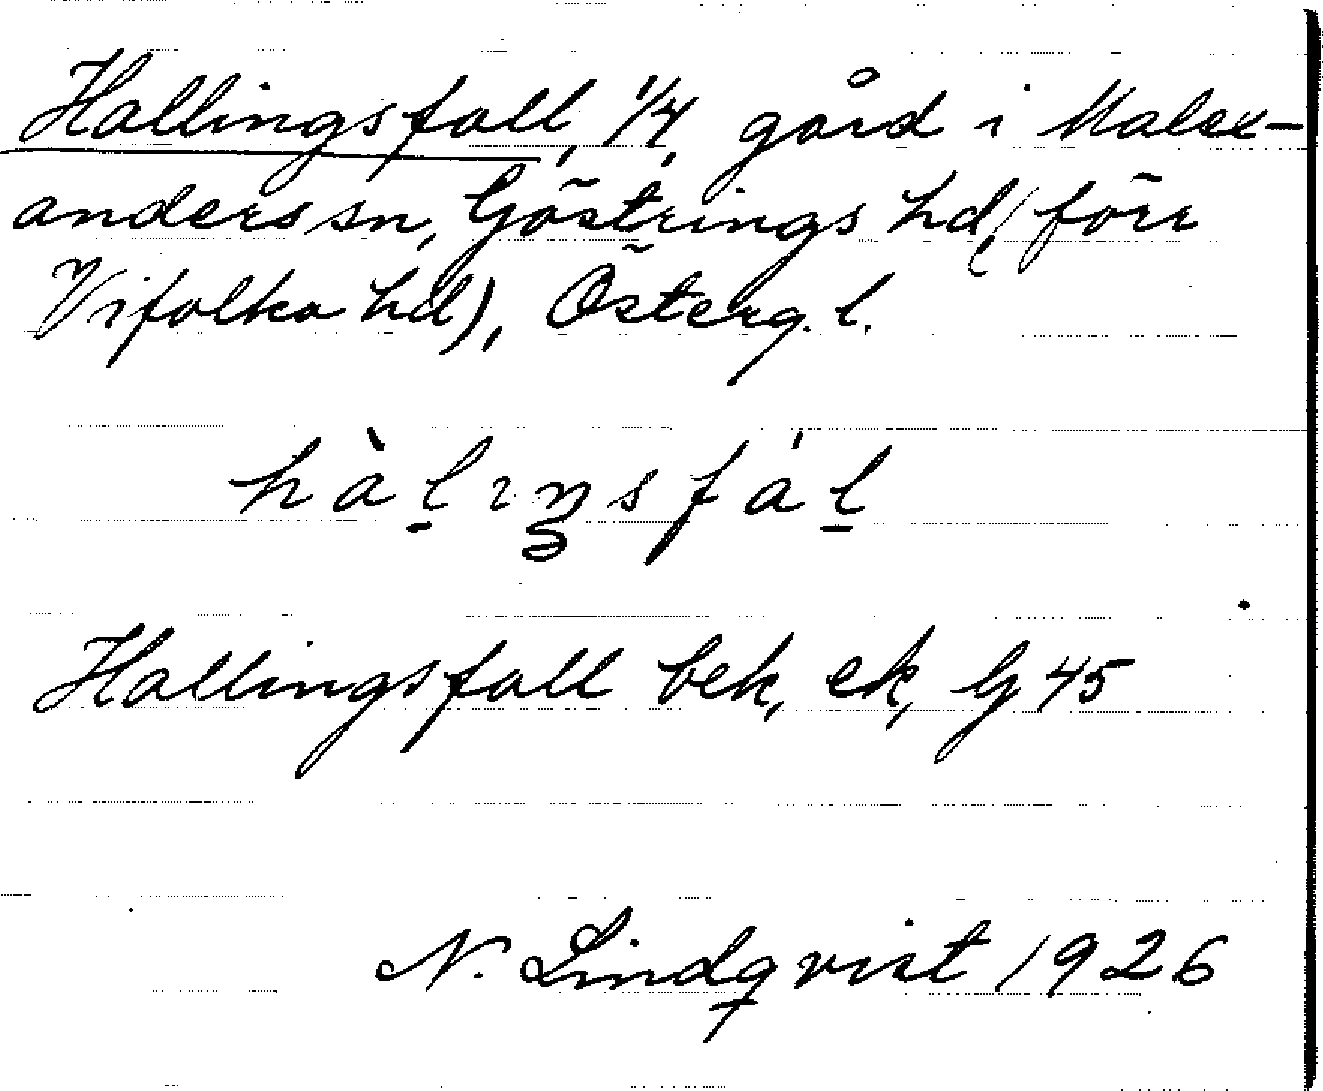 Hallingsfall, 1/4, gård i Malex-
anders sn, Göstrings hd (förr
Vifolka hd), Österg. l.
hàlıŋsfál
Hallingsfall bek, ek, G 45
N. Lindqvist 1926